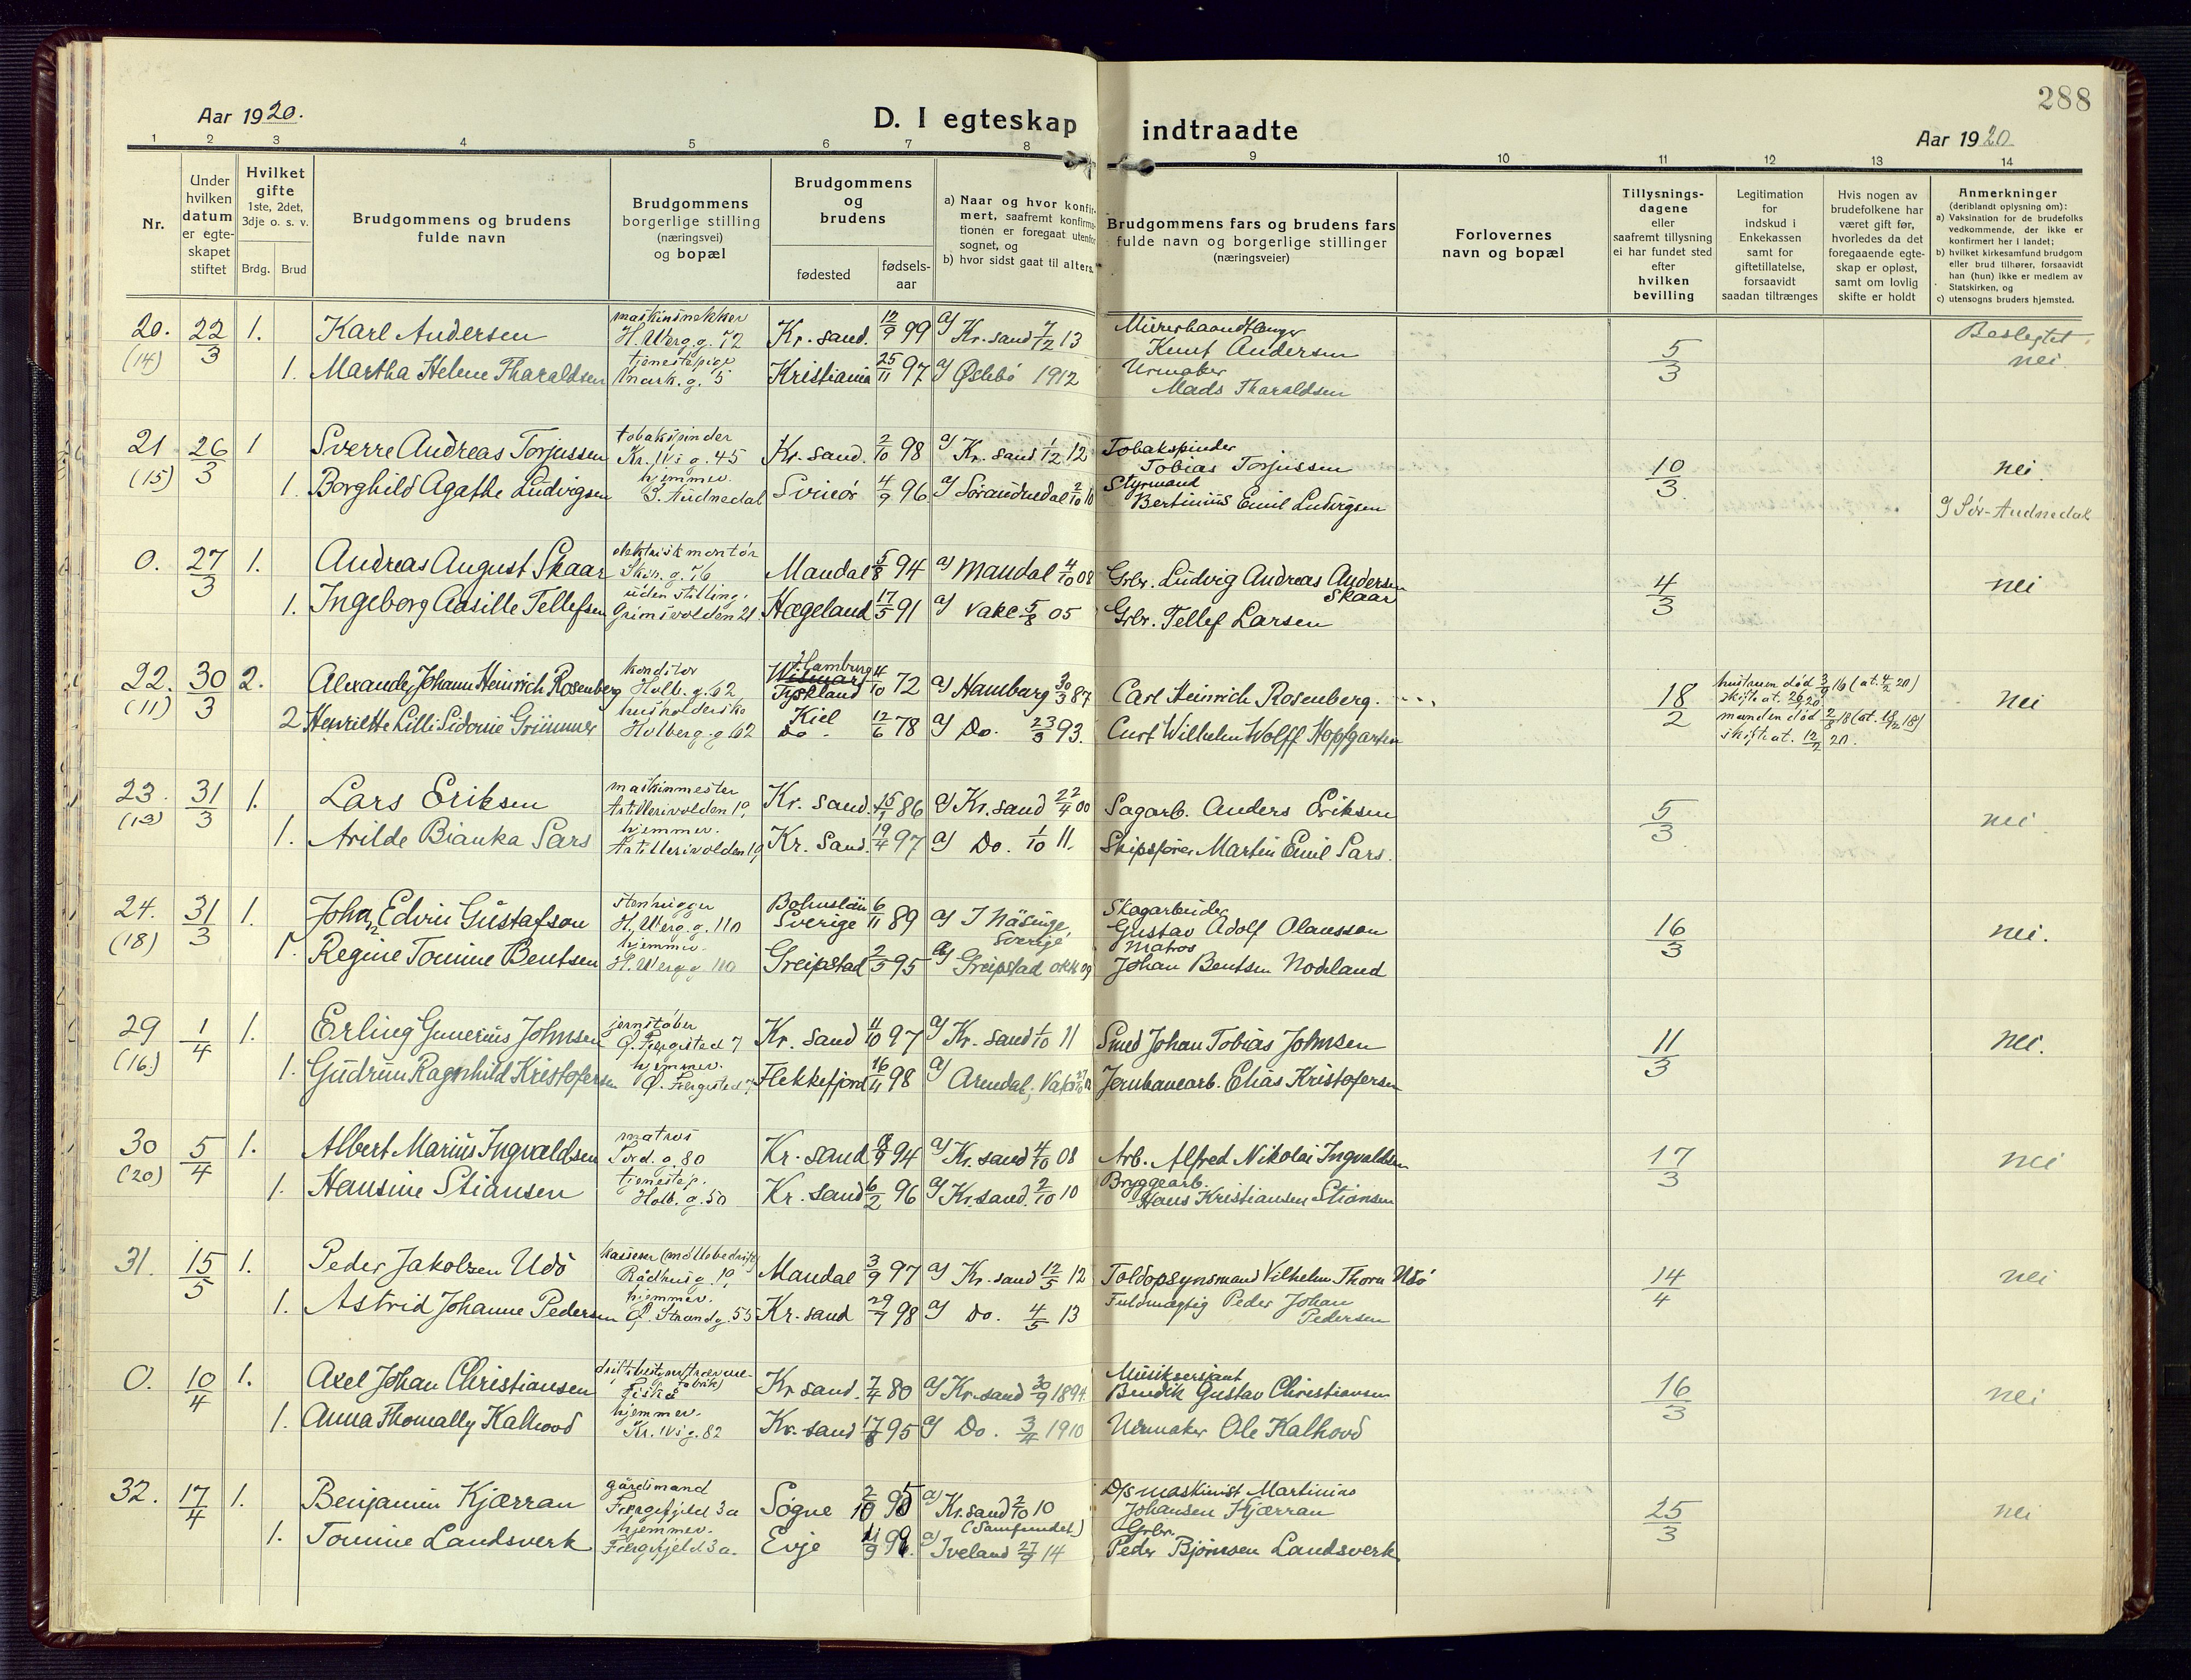 288
Aar 1920.
D. I egteskap indtraadte
Aar 1920
1 2 3 4 5 6 7 8 9 10 11 12 13 14
Nr.
Under hvilken datum er egte-skapet stiftet
Hvilket gifte 1ste, 2det, 3dje o. s. v.
Brdg. Brud
Brudgommens og brudens fulde navn
Brudgommens borgerlige stilling (næringsvei) og bopæl
Brudgommens og brudens
fødested fødsels-aar
a) Naar og hvor konfir-mert, saafremt konfirma-tionen er foregaat utenfor sognet, og
b) hvor sidst gaat til alters.
Brudgommens fars og brudens fars fulde navn og borgerlige stillinger (næringsveier)
Forlovernes navn og bopæl
Tillysnings-dagene eller saafremt tillysning ei har fundet sted efter hvilken bevilling
Legitimation for indskud i Enkekassen samt for giftetillatelse, forsaavidt saadan tiltrænges
Hvis nogen av brudefolkene har været gift før, hvorledes da det foregaaende egte-skap er opløst, samt om lovlig skifte er holdt
Anmerkninger (deriblandt oplysning om):
a) Vaksination for de brudefolks vedkommende, der ikke er konfirmert her i landet;
b) hvilket kirkesamfund brudgom eller brud tilhører, forsaavidt han (hun) ikke er medlem av Statskirken, og
c) utensogns bruders hjemsted.
20. (14) 22/3 1. Karl Andersen maskinsnekker H. Werg. g. 72 Kr. sand. 12/9 99 a) Kr. sand 7/12 13 Murerhaandlanger Knut Andersen 5/3 Beslegtet: nei.
1. Martha Helene Tharaldsen tjenestepige Mark. g. 5 Kristiania 25/11 97 a) Øslebö 1912 Urmaker Mads Tharaldsen
21 (15) 26/3 1 Sverre Andreas Torjussen tobakspinder Kr. IVs g. 45 Kr. sand. 2/10 98 a) Kr. sand 1/12 12 Tobakspinder Tobias Torjussen 10/3 nei.
1. Borghild Agathe Ludvigsen hjemmev. S. Audnedal Svinör 4/9 96 a) Sóraudnedal 2/10 10 Styrmand Bertinius Emil Ludvigsen c) Sör-Audnedal
0. 27/3 1. Andreas August Skaar elektriskmontör Skip. g. 76 Mandal 5/8 94 a) Mandal 4/10 08 Grbr. Ludvig Andreas Andersen Skaar 4/3 nei
1. Ingeborg Aasille Tellefsen uden stilling. Grimsvolden 21 Hægeland 17/5 91 a) Vake 5/8 05 Grbr. Tellef Larsen
22. (11) 30/3 2. Alexander Johann Heinrich Rosenberg konditor Holb. g. 62 Hamburg Wismar Tyskland 4/10 72 a) Hamburg 30/3 87 Carl Heinrich Rosenberg. 18/2 hustruen död 3/9 16 (at. 4/2 20) skifteat. 26/2 20 nei
2 Henriette Lilli Sidonie Grimmer husholderske Holberg. g 62 Kiel Do. 12/6 78 a) Do. 23/3 93. Curt Wilhelm Wolff Hopfgarten manden död 2/8 18 (at. 18/12 18) skifteat. 12/2 20.
23. (13) 31/3 1. Lars Eriksen maskinmester Artillerivolden 19 Kr. sand. 15/1 86 a) Kr. sand 22/4 00 Sagarb. Anders Eriksen 5/3 nei
1. Arilde Bianka Sars hjemmev. Artillerivolden 19 Kr. sand. 19/4 97 a) Do. 1/10 11. Skipsfører Martin Emil Sars.
24. (18) 31/3 1. Johan Edvin Gustafson stenhugger H. Werg. g. 110 Bohuslän Sverige 6/11 89 a) I Näsinge, Sverige Skogarbeider Gustav Adolf Olausson 16/3 nei.
1. Regine Tomine Bentsen hjemmev. H. Werg. g 110 Greipstad 2/5 95 a) Greipstad okt 09 Matros Johan Bentsen Nodeland
29 (16.) 1/4 1. Erling Gunerius Johnsen jernstöber Ö. Fiergested 7 Kr. sand 11/10 97 a) Kr. sand 1/10 11 Smed Johan Tobias Johnsen 11/3 nei.
1. Gudrun Ragnhild Kristofersen hjemmev. Ö. Fiergested 7 Flekkefjord 16/11 98 a) Arendal. Jernbanearb. Elias Kristofersen
30 (20) 5/4 1. Albert Marius Ingvaldsen matros Tord. g. 80 Kr. sand 8/9 94 a) Kr. sand 4/10 08 Arb. Alfred Nikolai Ingvaldsen 17/3 nei
1. Hansine Stiansen tjenestep. Holb. g. 50 Kr. sand 6/2 96 a) Kr. sand. 2/10 10 Bryggearb. Hans Kristiansen Stiansen
31. 15/5 1. Peder Jakobsen Udö kasserer Rådhusg. 19 Mandal 3/9 97 a) Kr. sand 12/5 12 Toldopsynsmand Vilhelm Thorn Udö 14/4 nei
1. Astrid Johanne Pedersen hjemmev. Ö. Strandg. 55 Kr. sand 29/7 98 a) Do. 4/5 13 Fuldmægtig Peder Johan Pedersen
0. 10/4 1. Axel Johan Christiansen Kr. sand. 7/4 80 a) Kr. sand 30/9 1894. Musiksersjant Bendik Gustav Christiansen 16/3 nei
1. Anna Thomally Kalhovd hjemmev. Kr. IVs g. 82 Kr. sand 17/8 95 a) Do. 3/4 1910 Urmaker Ole Kalhovd
32. 17/4 1. Benjamin Kjærran gårdsmand Fiergefjeld 3a Søgne 2/10 95 a) Kr. sand 2/10 10 (Samfundet) D/s maskinist Martinius Johansen Kjærran 25/3 nei
1. Tomine Landsverk hjemmev. Fiergefjeld 3a. Evje 11/9 99. a) Iveland 27/9 14 Grbr. Peder Bjørnsen Landsverk